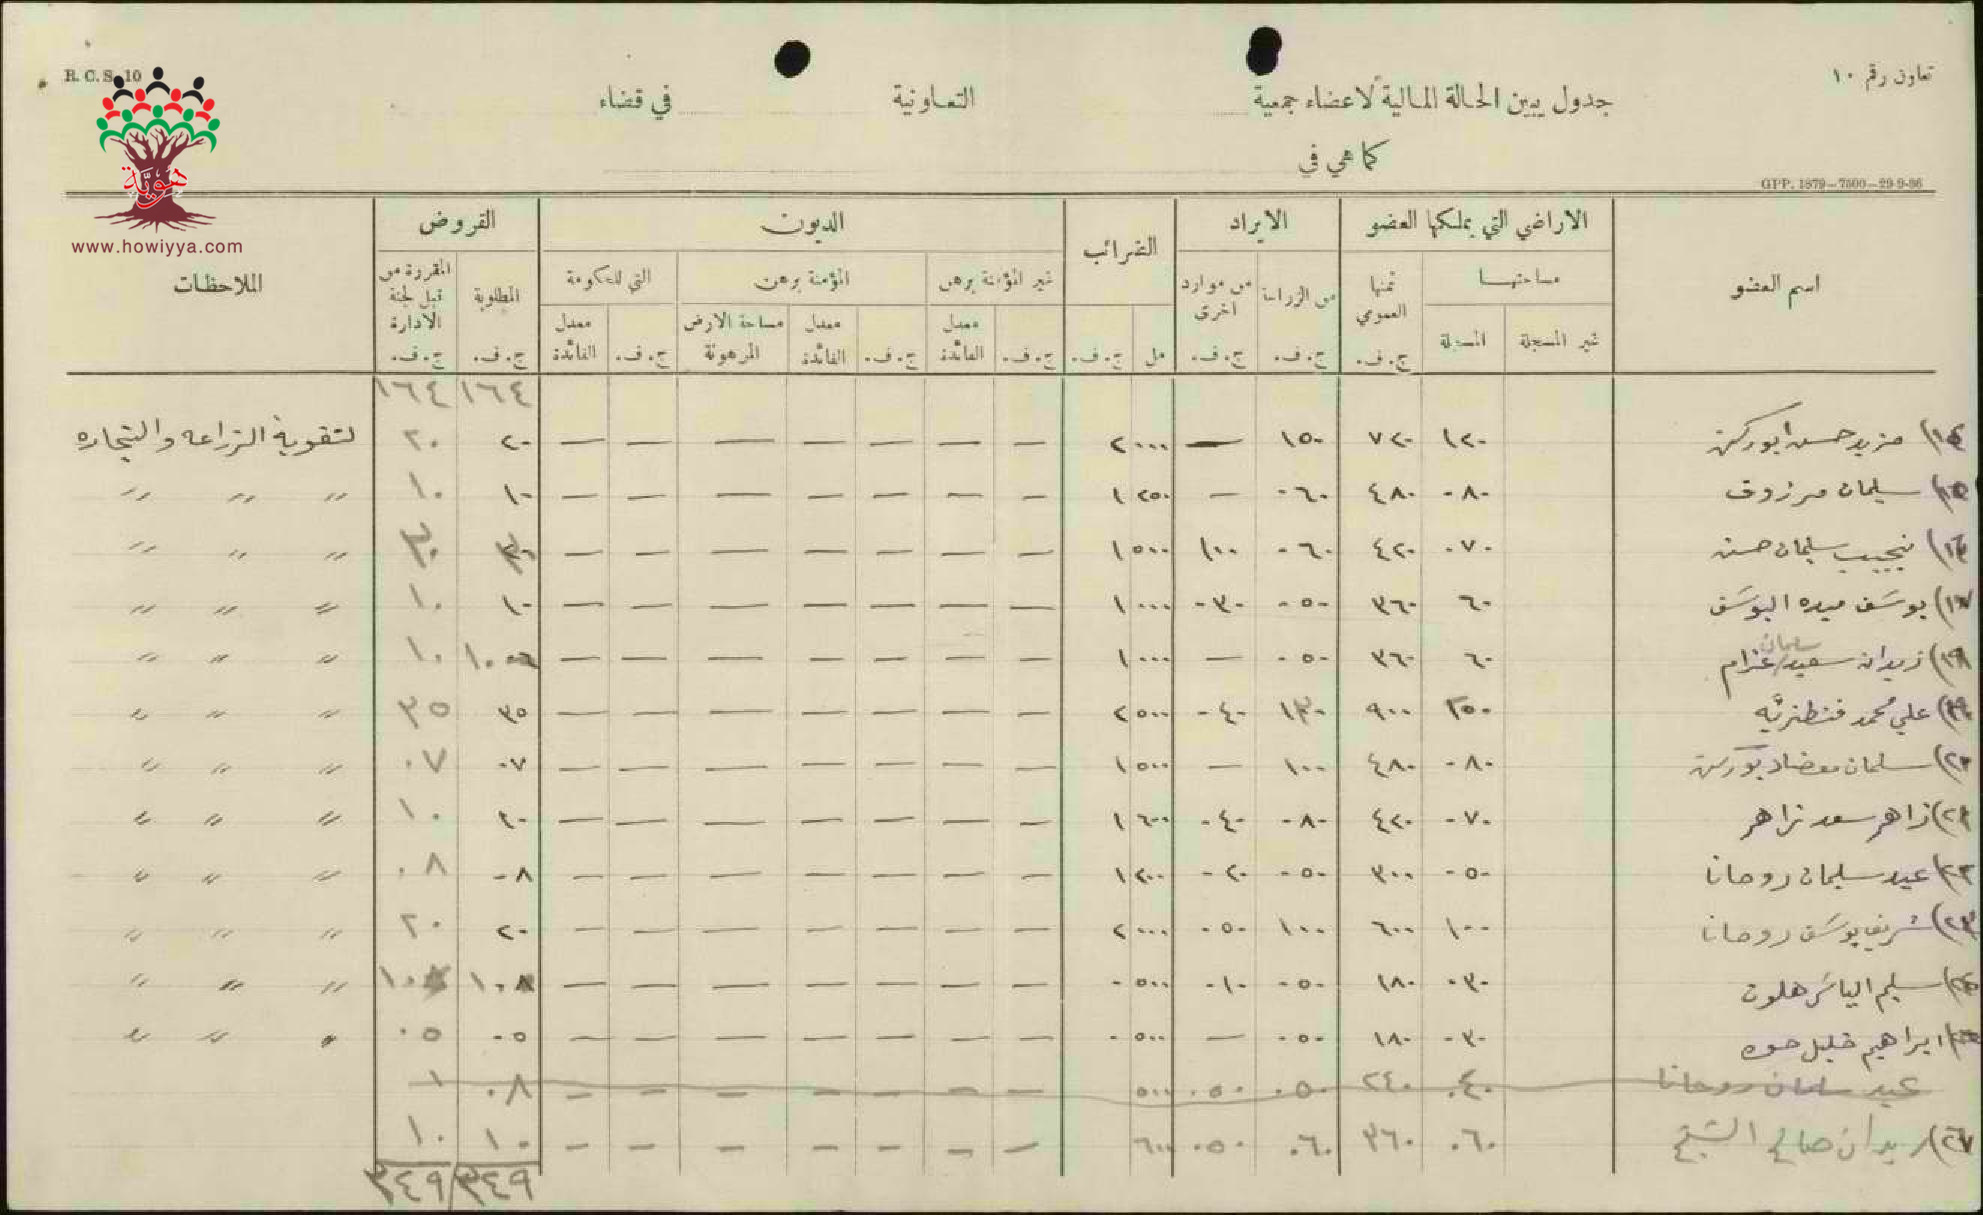 R. C. S. 10
تعاون رقم ١٠
جدول يبين الحالة المالية لاعضاء جمعية التعاونية في قضاء
كما هي في
GPP. 1879—7500—29-9-36
هوية
www.howiyya.com
اسم العضو الاراضي التي يملكها العضو الايراد الضرائب الديون القروض الملاحظات
مساحتها ثمنها العمومي من الزراعة من موارد اخرى غير المؤمنة برهن المؤمنة برهن التي للحكومة المطلوبة المقررة من قبل لجنة الادارة
غير المسجلة المسجلة ج.ف. ج.ف. ج.ف. مل ج.ف. ج.ف. معدل الفائدة ج.ف. معدل الفائدة مساحة الارض المرهونة ج.ف. معدل الفائدة ج.ف. ج.ف.
١٦٤ ١٦٤
مزيد حسن ابوركن ١٢٠ ٧٢٠ ١٥٠ — ٢٠٠٠ — — — — — — — ٢٠ ٢٠ لتقوية الزراعة والتجاره
١٥) سليمان مرزوق ٠٨٠ ٤٨٠ ٠٦٠ — ١٢٥٠ — — — — — — — ١٠ ١٠ 〃 〃 〃
١٦) نجيب سليمان حسن ٠٧٠ ٤٢٠ ٠٦٠ ١٠٠ ١٥٠٠ — — — — — — — ٣٠ ٣٠ 〃 〃 〃
١٧) يوسف اليوسف ٦٠ ٣٦٠ ٠٥٠ ٠٣٠ ١٠٠٠ — — — — — — — ١٠ ١٠ 〃 〃 〃
١٨) زيدان سعيد سليمان عزام ٦٠ ٣٦٠ ٠٥٠ — ١٠٠٠ — — — — — — — ١٠ ١٠ 〃 〃 〃
١٩) علي محمد ١٥٠ ٩٠٠ ١٣٠ ٠٤٠ ٢٥٠٠ — — — — — — — ٣٥ ٣٥ 〃 〃 〃
٢٠) سلمان معضاد بوركن ٠٨٠ ٤٨٠ ١٠٠ — ١٥٠٠ — — — — — — — ٠٧ ٠٧ 〃 〃 〃
٢١) زاهر سعد زاهر ٠٧٠ ٤٢٠ ٠٨٠ ٠٤٠ ١٦٠٠ — — — — — — — ١٠ ١٠ 〃 〃 〃
٢٢) عيد سليمان روحانا ٠٥٠ ٣٠٠ ٠٥٠ ٠٢٠ ١٢٠٠ — — — — — — — ٠٨ ٠٨ 〃 〃 〃
٢٣) شريف يوسف روحانا ١٠٠ ٦٠٠ ١٠٠ ٠٥٠ ٢٠٠٠ — — — — — — — ٢٠ ٢٠ 〃 〃 〃
سليم الياس هلون ٠٣٠ ١٨٠ ٠٥٠ ٠١٠ ٠٥٠٠ — — — — — — — ١٠ ١٠ 〃 〃 〃
ابراهيم خليل ٠٣٠ ١٨٠ ٠٥٠ — ٠٥٠٠ — — — — — — — ٠٥ ٠٥ 〃 〃 〃
عيد سلمان روحانا ٠٤٠ ٢٤٠ ٠٥٠ ٠٥٠ ٥٠٠ — — — — — — — ٠٨ ١
زيدان صالح الشيخ ٠٦٠ ٣٦٠ ٠٦٠ ٠٥٠ ٦٠٠ — — — — — — — ١٠ ١٠
٣٤٩ ٣٤٩